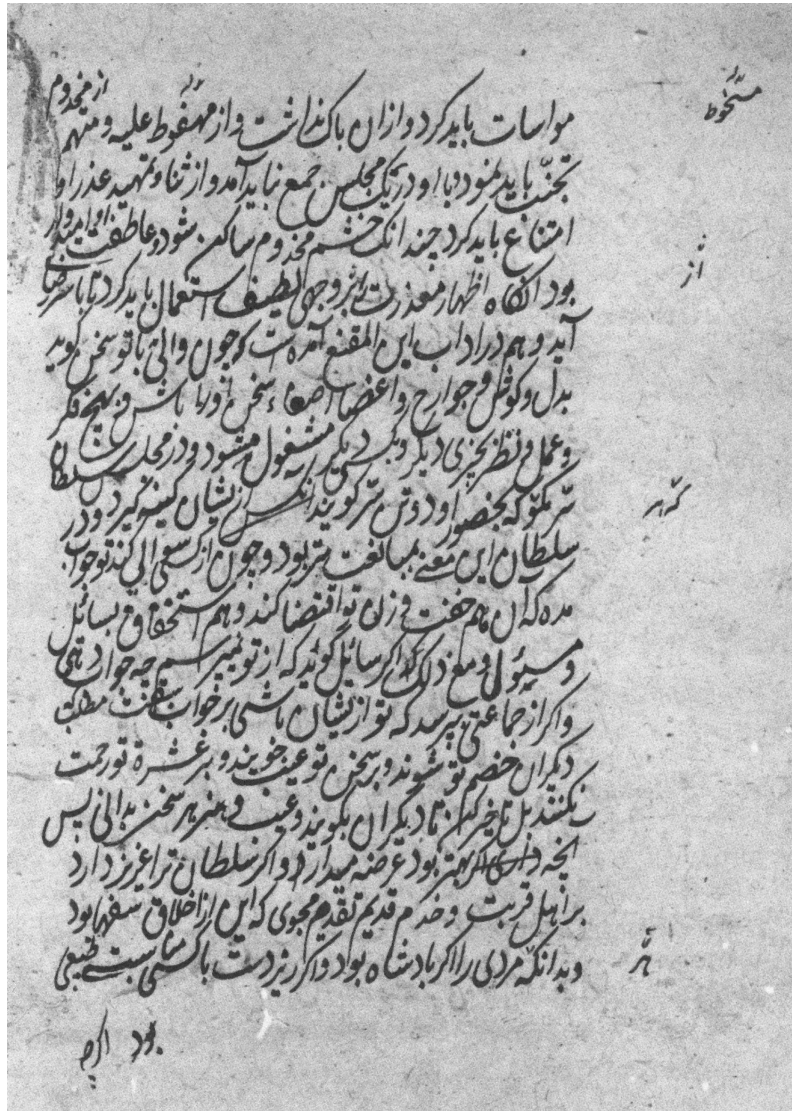 مواسات باید کرد و ازان باک نداشت و از مسخوط علیه و متهم از مخدوم
تجنّب باید نمود و با او در یک مجلس جمع نباید آمد و از ثنا و تمهید عذر او
امتناع باید کرد چندانک خشم مخدوم ساکن شود و عاطفت او امیدوار
بود آنگاه اظهار معذرت او بر وجهی لطیف استعمال باید کرد تا با سر رضا
آید و هم در اداب ابن المقنع آمده است که چون والی با تو سخن گوید
بدل و گوش و جوارح و اعضا اصغاء سخن او را باش و بهیچ فکر
و عمل و نظر بچیزی دیگر و بکسی دیگر مشغول مشو و در مجلس سلطان
سر مگو که بحضور او دو تن سر گویند انکس ازیشان کینه گیرد و در
سلطان این معنی بمبالغت تر بود و چون از کسی سؤالی کند تو جواب
مده که آن هم خفت وزن تو اقتضا کند و هم استخفاف بسائل
و مسئول و مع ذلک اگر سائل گوید که از تو نمیپرسم چه جواب دهی
و اگر از جماعتی پرسد که تو ازیشان باشی بر جواب سبقت مطلب
دیگران خصم تو شوند و بر سخن تو عیب جویند و بر عثرة تو رحمت
نکنند بل تاخیر کن تا دیگران بگویند و عیب و هنر هر سخن بدانی پس
انچه بهتر بود عرضه میدار و اگر سلطان ترا عزیز دارد
بر اهل قربت و خدم قدیم تقدم مجوی که این از اخلاق سفها بود
و بدانکه مردی را اگر پادشاه بود و اگر زیردست با کسی مناسبت طبیعی
بود اگرچه
مسخوط
از
که هر
هر